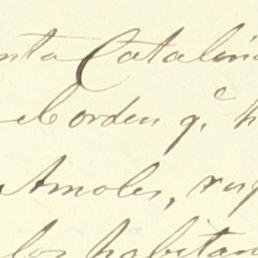 nta Catalina
el orden q.e h
Amoles, 
los habitan